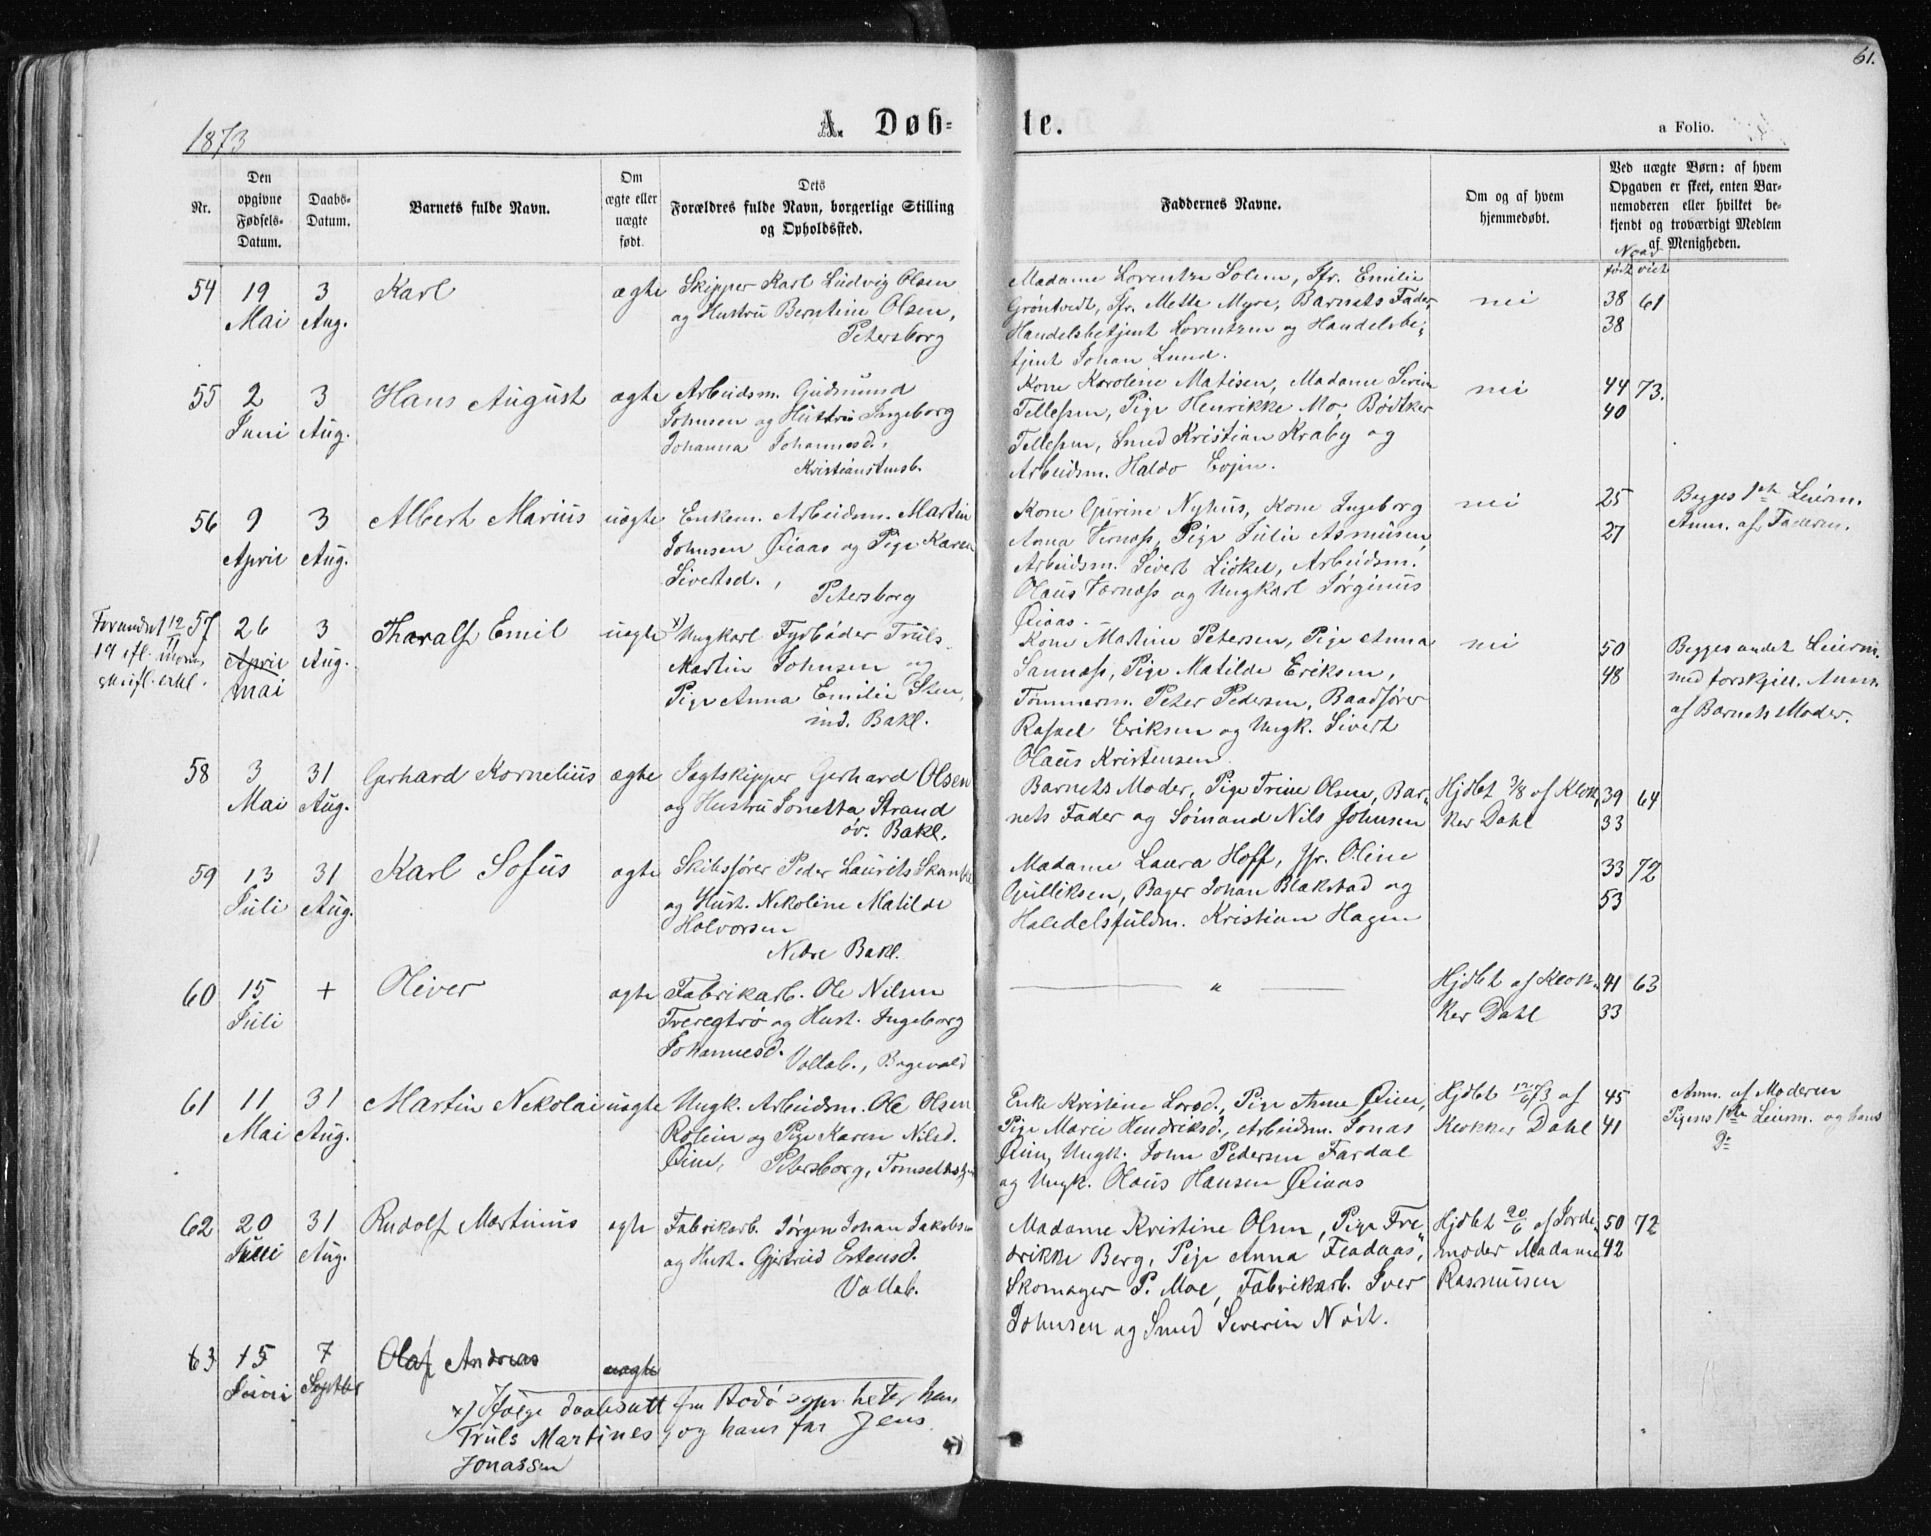 61.
1873
A. Døb-
te.
a Folio.
Nr.
Den opgivne Fødsels-Datum.
Daabs-Datum.
Barnets fulde Navn.
Om ægte eller uægte født.
Dets Forældres fulde Navn, borgerlige Stilling og Opholdssted.
Faddernes Navne.
Om og af hvem hjemmedøbt.
Ved uægte Børn: af hvem Opgaven er skeet, enten Barnemoderen eller hvilket bekjendt og troværdigt Medlem af Menigheden.
født viet
54 19 Mai 3 Aug. Karl ægte
Skipper Karl Ludvig Olsen
og Hustru Berntine Olsen,
Petersborg
Madame Lorentze Solem, Jfr. Emilie
Grøntvedt, Jfr. Mette Myre, Barnets Fader,
Handelsbetjent Lorentzen og Handelsbe-
tjent Johan Lund.
nei
38 61
38
55 2 Juni 3 Aug. Hans August ægte
Arbeidsm. Gudmund
Johnsen og Hustru Ingeborg
Johanna Johannesd.,
Kristiansttnsb.
Kone Karoline Matisen, Madame Serine
Tellefsen, Pige Henrikke Mo, Bødtker
Tellefsen, Smed Kristian Kraby og
Arbeidsm. Haldo Evjen.
nei
44 73.
40
56 9 April 3 Aug. Albert Marius uægte
Enkem. Arbeidsm. Martin
Johnsen Øiaas og Pige Karen
Sivertsd.,
Petersborg
Kone Gurine Nyhus, Kone Ingeborg
Anna Vernæss, Pige Julie Asmusen,
Arbeidsm. Sivert Liøkel, Arbeidsm.
Olaus Værnæss og Ungkarl Jørginus
Øiaas.
nei
25
27
Begges 1ste Leierm.
Anm. af Faderen.
Forandret 12/11
19 efl. mors
skriftl. erkl.
57 26 April mai 3 Aug. Tharalf Emil uægte
x) Ungkarl Fyrbøder Truls
Martin Johnsen og
Pige Anna Emilie Sten,
ind. Bakl.
Kone Martine Petersen, Pige Anna
Sannæss, Pige Matilde Eriksen,
Tømmerm. Peter Pedersen, Baadfører
Rafael Eriksen og Ungk. Sivert
Olaus Kristensen.
nei
50
48
Begges andet Leierm.
med forskjell. Anm.
af Barnets Moder.
58 3 Mai 31 Aug. Gerhard Kornelius ægte
Jagtskipper Gerhard Olsen
og Hustru Jonetta Strand
øv. Bakl.
Barnets Moder, Pige Trine Olsen, Bar-
nets Fader og Sømand Nils Johnsen
Hjdbt 3/8 af Klok-
ker Dahl
39 64
33
59 13 Juli 31 Aug. Karl Sofus ægte
Skibsfører Peder Laurits Skanke
og Hust. Nekoline Matilde
Halvorsen
Nedre Bakl.
Madame Laura Hoff, Jfr. Oline
Gulliksen, Bager Johan Blakstad og
Handelsfuldm. Kristian Hagen
33 72
53
60 15 Juli + Oliver ægte
Fabrikarb. Ole Nilsen
Tveregtrø og Hust. Ingeborg
Johannesd.
Vollab., Bagevold
"
Hjdbt af Klok-
ker Dahl
41 63
33
61 11 Mai 31 Aug. Martin Nekolai uægte
Ungk. Arbeidsm. Ole Olsen
Rolein og Pige Karen Nilsd.
Øien, Petersborg,
Enke Kristine Larsd., Pige Anne Øien,
Pige Marie Hendriksd., Arbeidsm. Jonas
Øien, Ungk. John Pedersen Fardal
og Ungk. Olaus Hansen Øiaas
Hjdbt 12/6 73 af
Klokker Dahl
45
41
Anm. af Moderen
Pigens 1ste Leierm. og hans
Do
62 20 Juli 31 Aug. Rudolf Martinus ægte
Fabrikarb. Jørgen Johan Jakobsen
og Hust. Gjertrud Estensd.
Vollab.
Madame Kristine Olsen, Pige Fre-
drikke Berg, Pige Anna Fladaas,
Skomager P. Moe, Fabrikarb. Iver
Johnsen og Smed Severin Nøst.
Hjdbt 20/6 af Jorde-
moder Madame
Rasmusen
50 72
42
63 15 Juni 7 Septbr Olaf Andreas uægte
x) Ifølge daabsatt fra Rodø sgpr. heter han
Truls Martines og hans far Jens
Jonassen